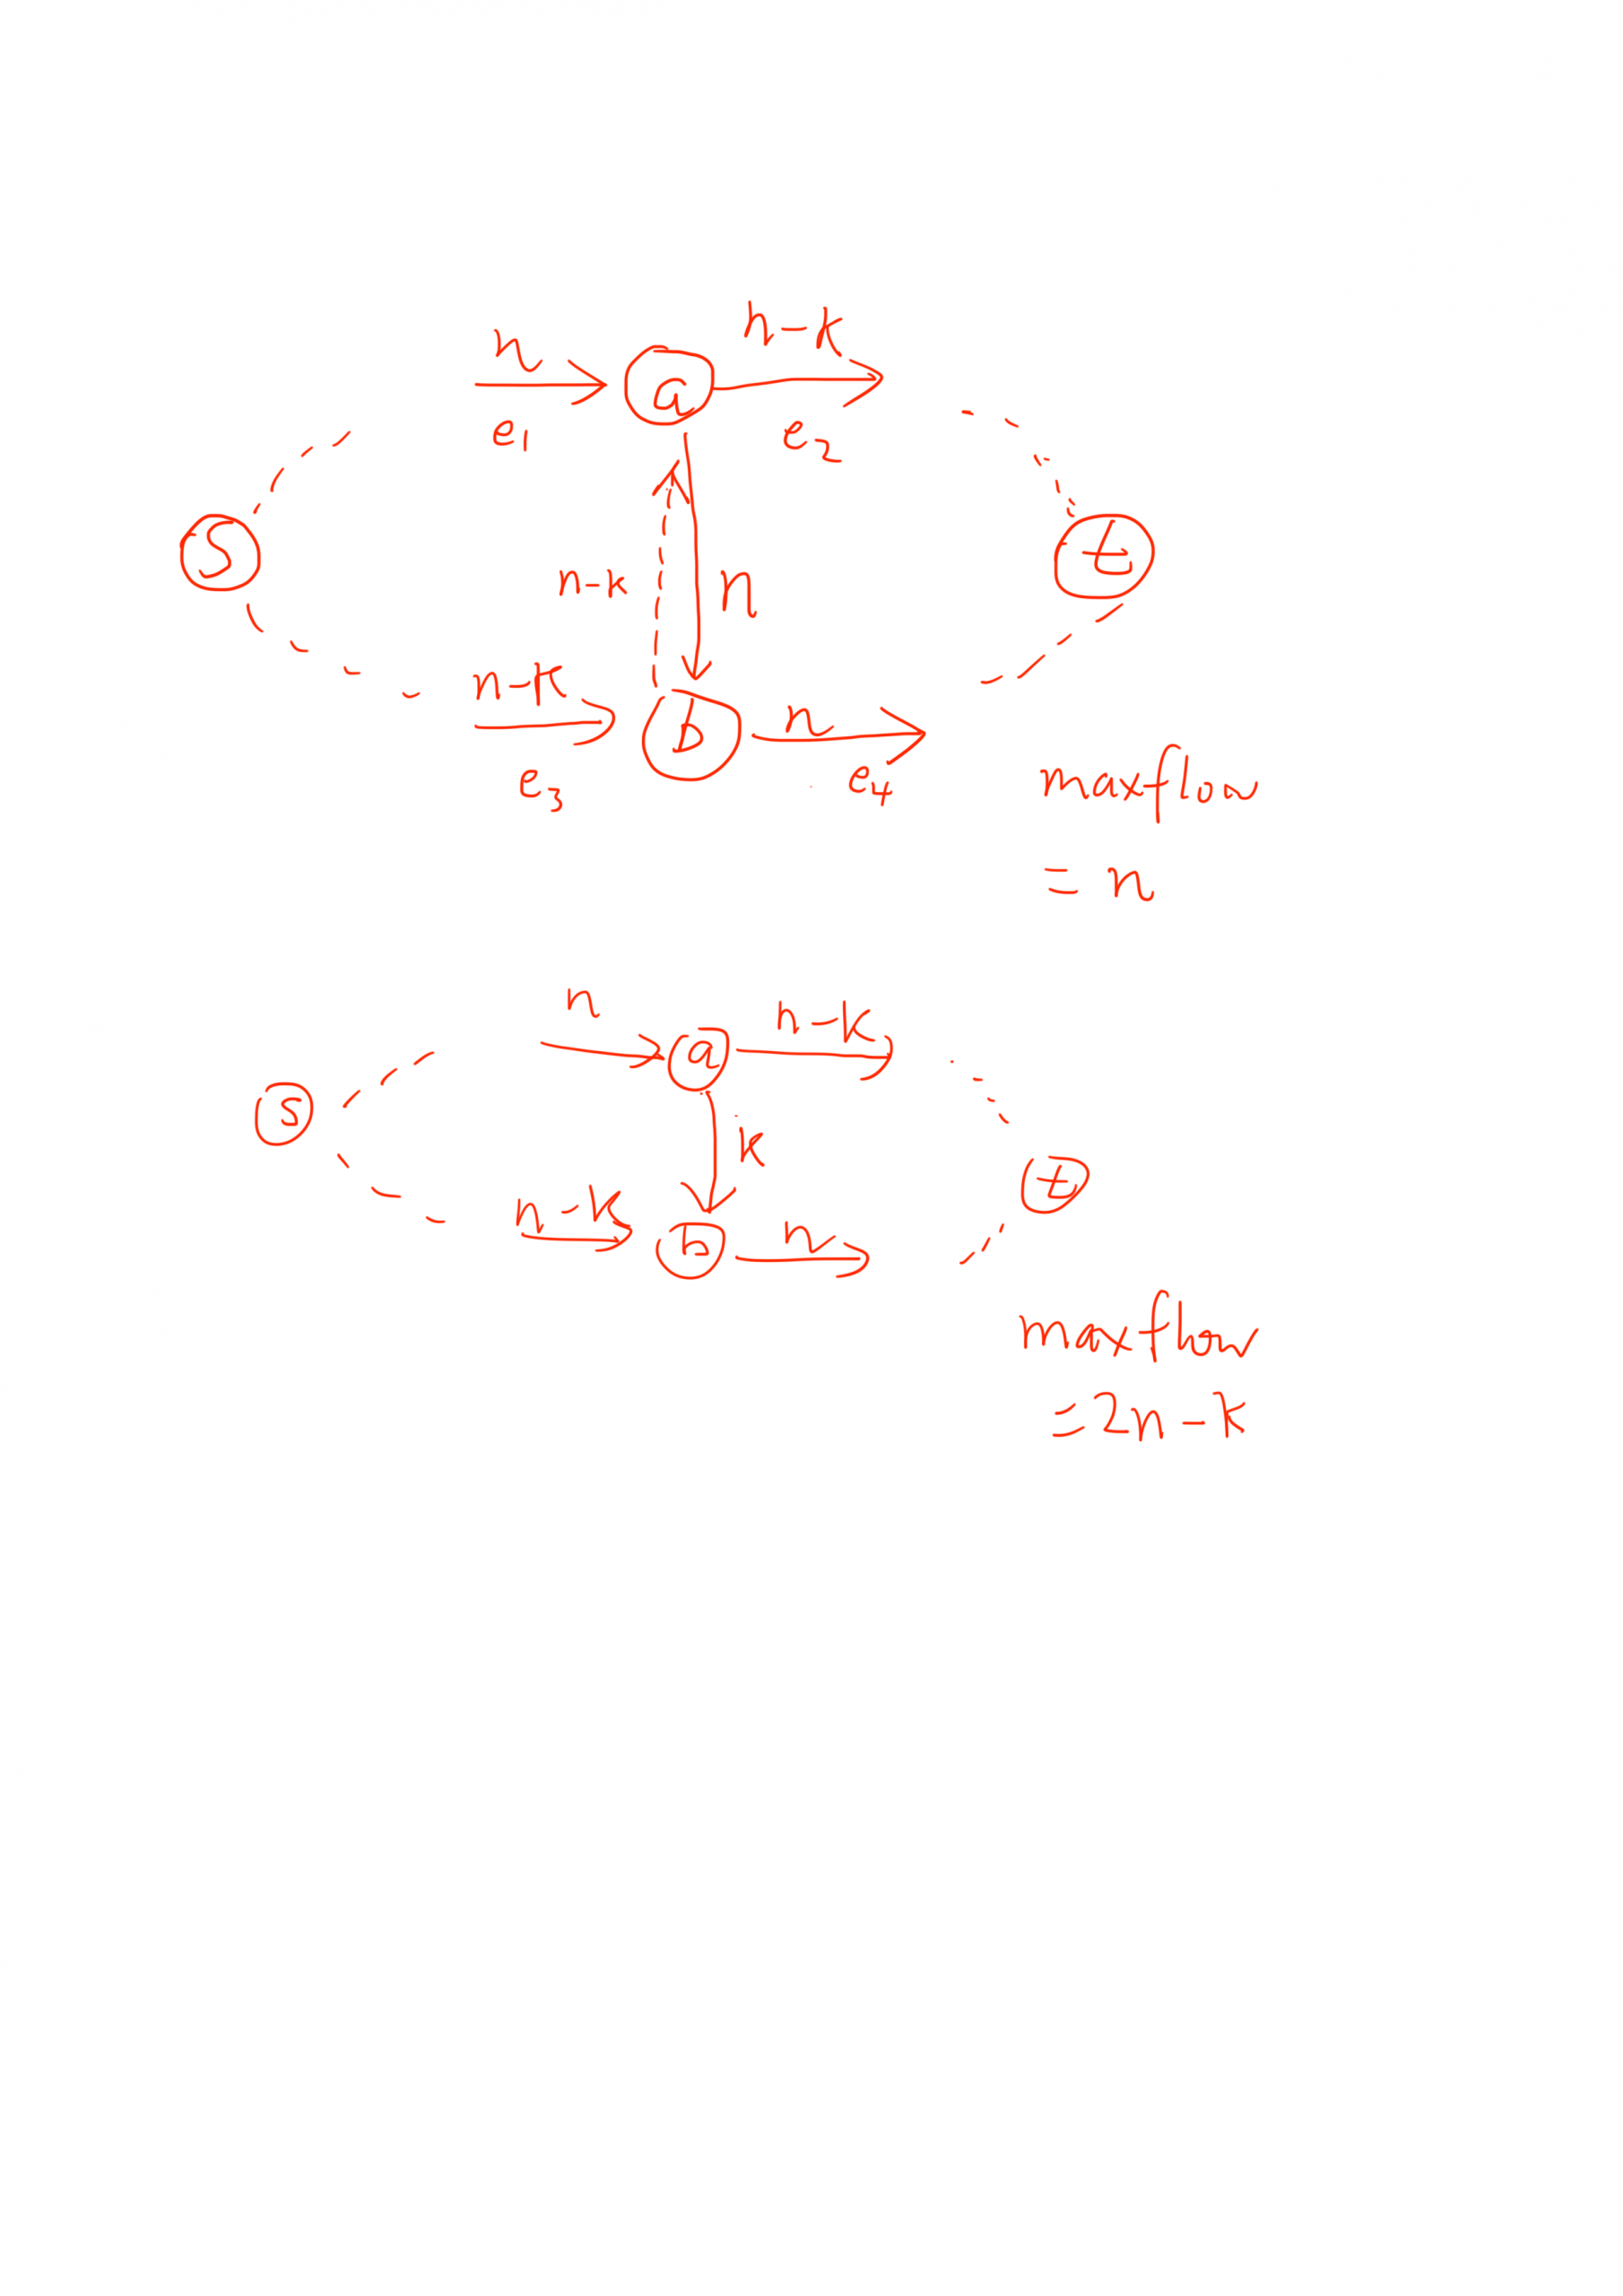 n
n-k
a
e1
e2
s
t
n-k
n
n-k
b
n
e3
e4
maxflow
= n
n
n-k
a
s
k
t
n-k
b
n
maxflow
= 2n-k